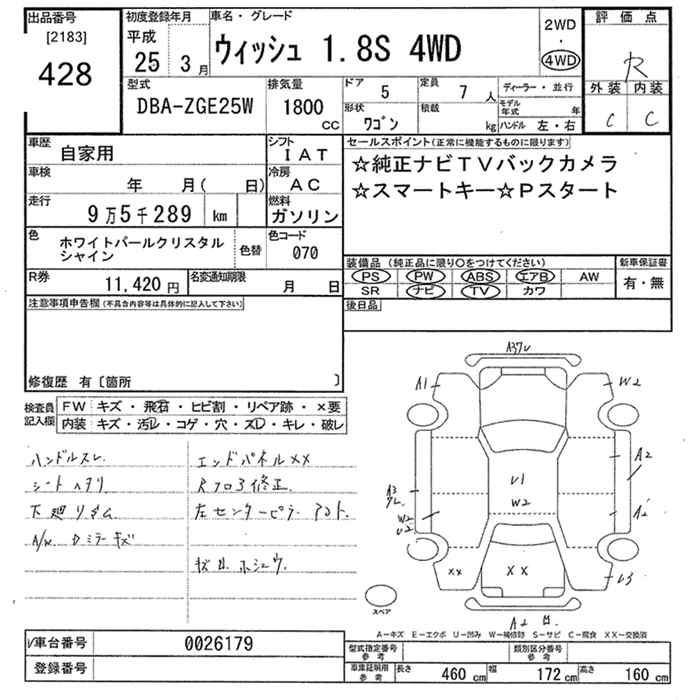 出品番号
[2183]
428
初度登録年月
平成
25 3月
車名・グレード
ウィッシュ 1.8S 4WD
2WD
・
4WD
評価点
R
外装 内装
C C
型式
DBA-ZGE25W
排気量
1800
CC
ドア 5
定員 7 人
形状
ワゴン
積載
kg
ディーラー・並行
モデル年式 年
ハンドル 左・右
車歴
自家用
シフト
IAT
車検
年 月( 日)
冷房
AC
走行
9万5千289 km
燃料
ガソリン
色
ホワイトパールクリスタル
シャイン
色替
色コード
070
R券
11,420円
名変通知期限
月 日
セールスポイント(正常に機能するものに限ります)
☆純正ナビTVバックカメラ
☆スマートキー☆Pスタート
装備品 (純正品に限り○をつけてください)
PS PW ABS エアB AW
SR ナビ TV カワ
新車保証書
有・無
後日品
注意事項申告欄(不具合内容等は具体的に記入して下さい)
修復歴 有〔箇所 〕
検査員
記入欄
FW キズ・飛石・ヒビ割・リペア跡・×要
内装 キズ・汚レ・コゲ・穴・スレ・キレ・破レ
ハンドルスレ
シートヘタリ
下廻りサム
エンドパネルXX
Rフロア修正
左センターピラー
A1
W2
A2
A2
U1
W2
A3
W2
U2
XX
XX
U3
A2
スペア
A-キズ E-エクボ U-凹み W-補修跡 S-サビ C-腐食 XX-交換済
車台番号 0026179
登録番号
型式指定番号
参考
類別区分番号
参考
車庫証明用
参考
長さ 460 cm 幅 172 cm 高さ 160 cm